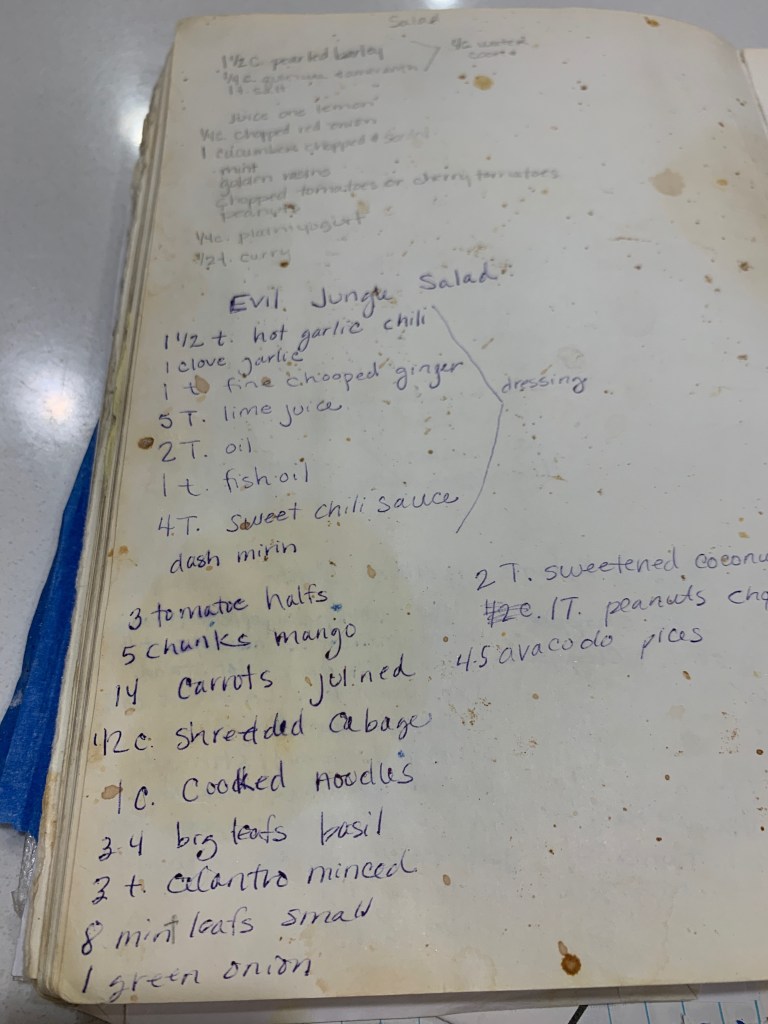 Salad
1 1/2 c. pearled barley
water
1/4 c.
1 t. salt
Juice one lemon
1/4c chopped red onion
1 cucumbers chopped &
mint
golden
chopped tomatoes or cherry tomatoes
peanuts
1/4c. plain yogurt
1/2 t. curry
Evil Jungle Salad
1 1/2 t. hot garlic chili
1 clove garlic
1 t fine chooped ginger
dressing
5 T. lime juice
2 T. oil
1 t. fish oil
4 T. sweet chili sauce
dash mirin
3 tomatoe halfs
5 chunks mango
14 carrots julined
1/2 c. shredded cabage
1 c. cooked noodles
3 4 big leafs basil
3 t. cilantro minced
8 mint leafs small
1 green onion
2 T. sweetened coconu
1/2 c. 1T. peanuts cho
4-5 avacodo pices